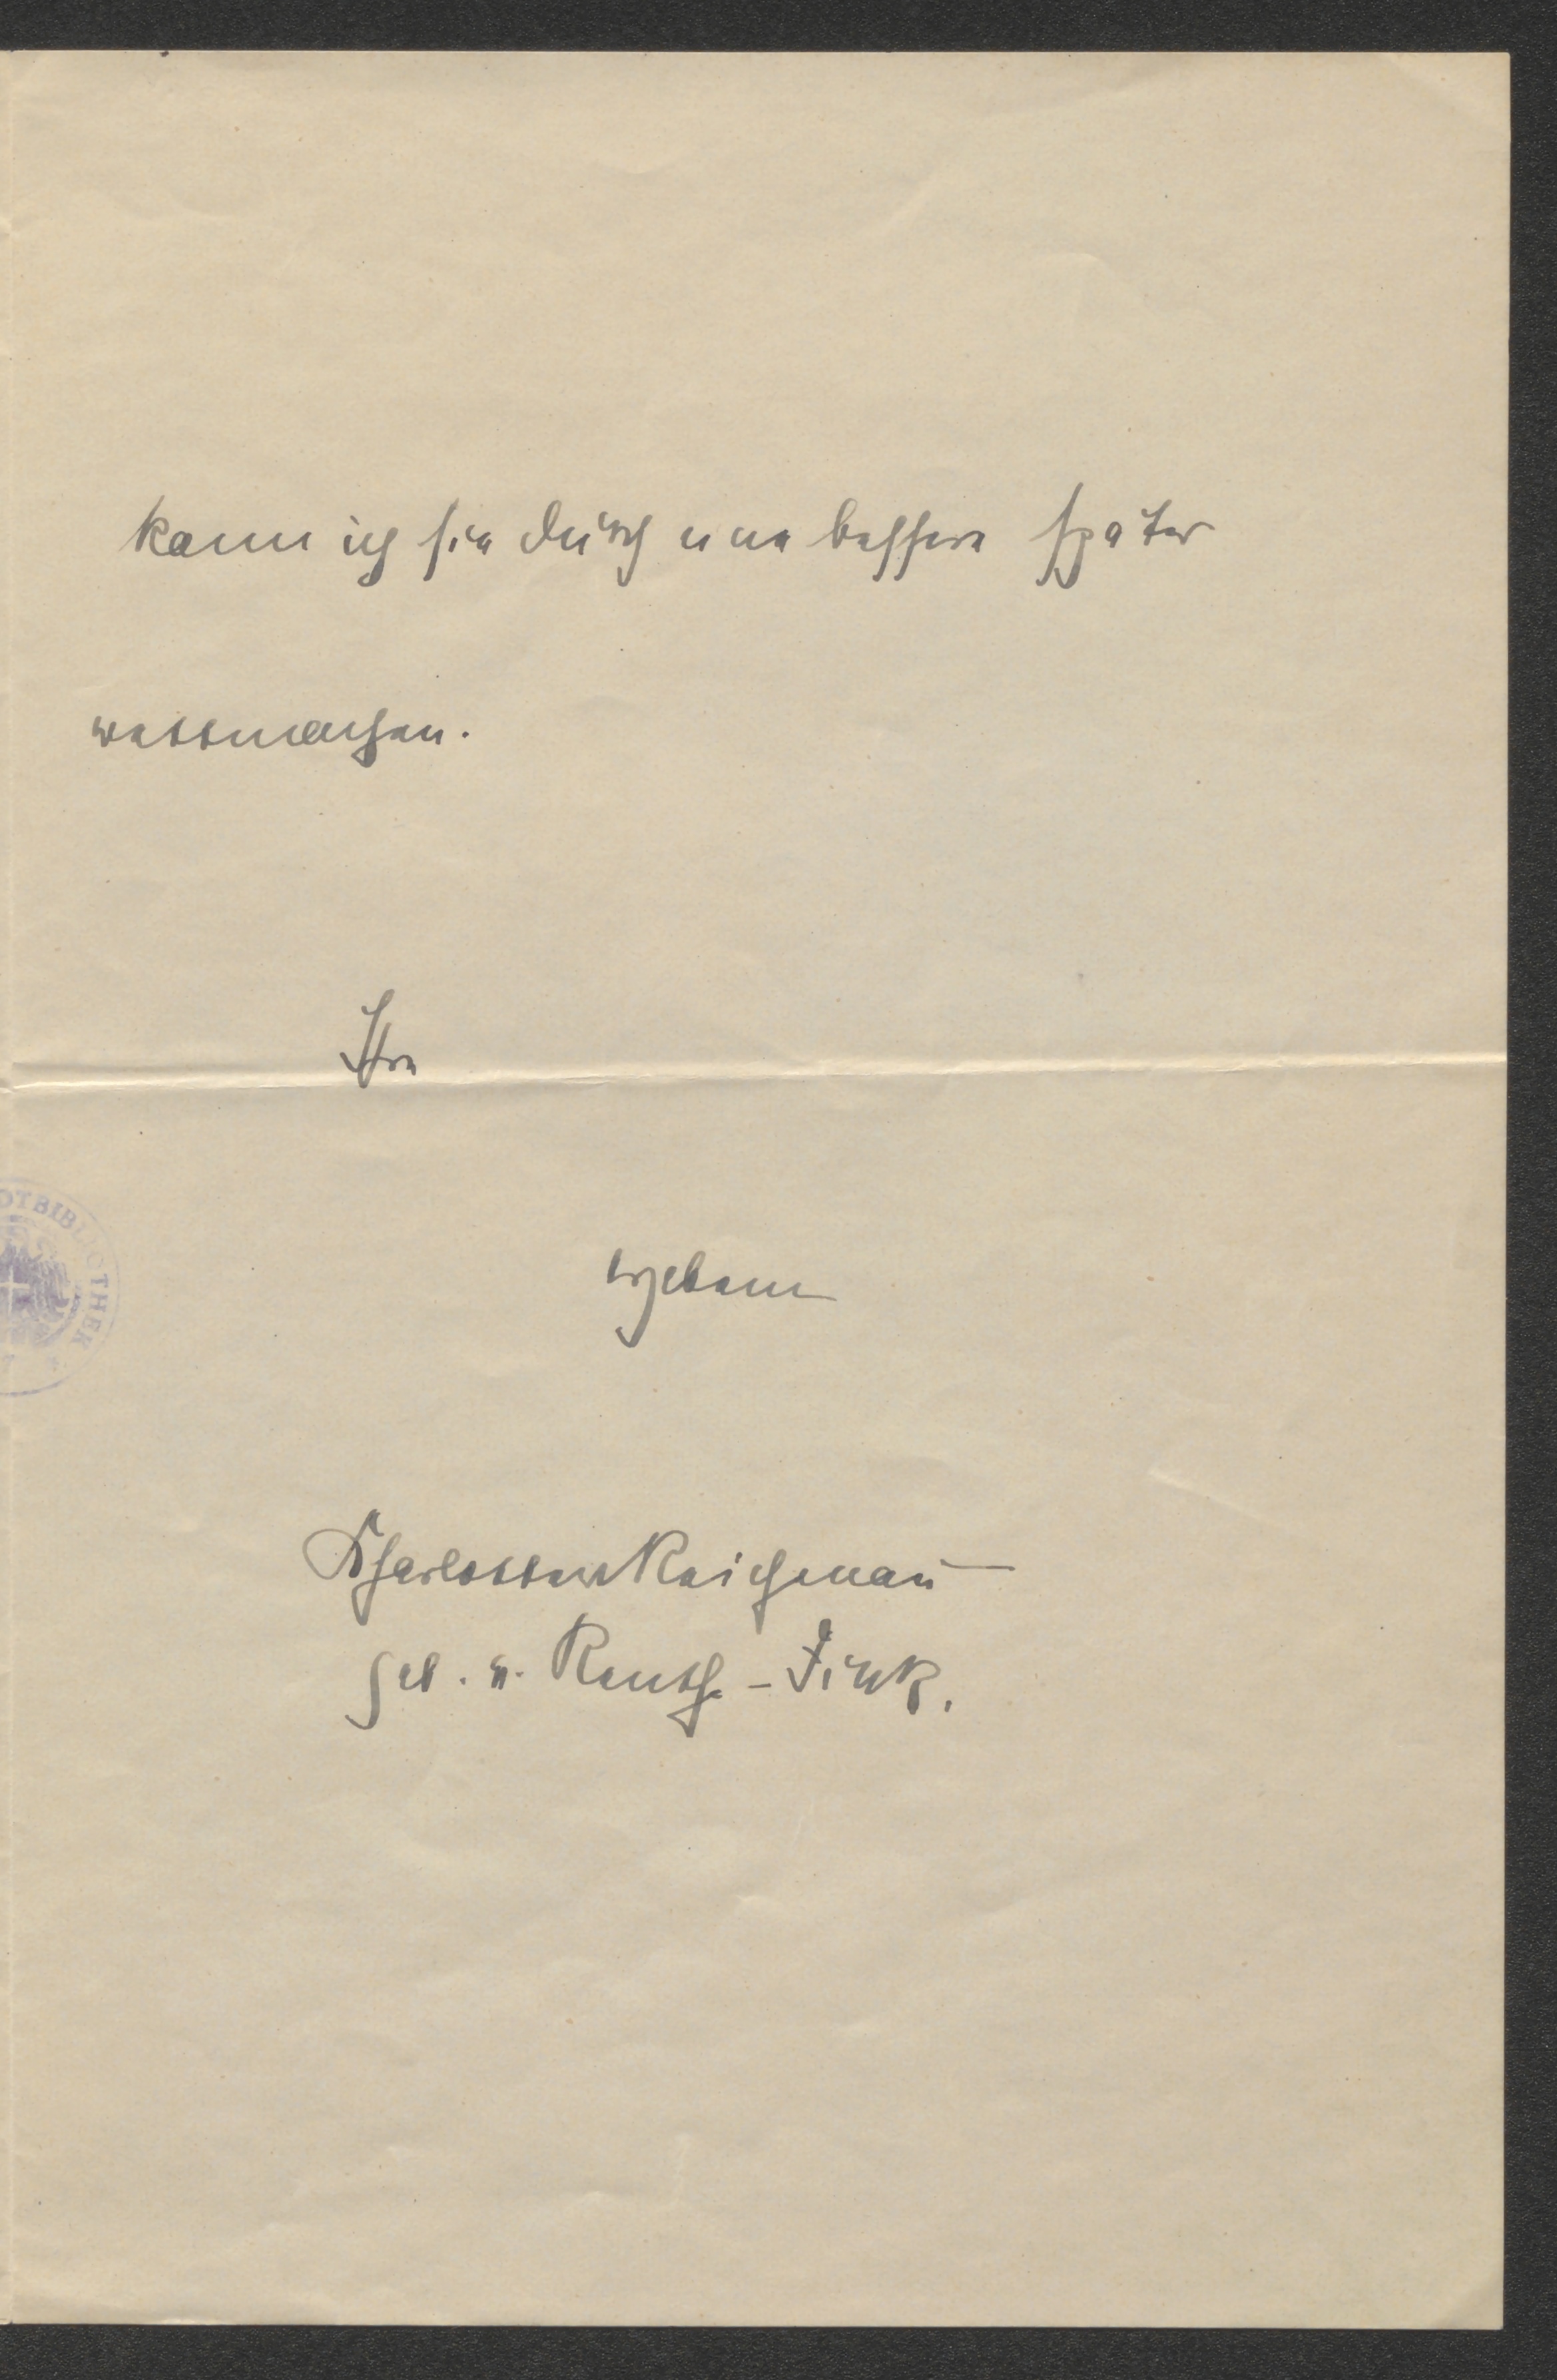 kann ich sie durch eine bessere später
wettmachen.
Ihre
ergebene
Charlotte v Reichenau
geb. v. Renthe-Fink.
OTBIBLIOTHEK